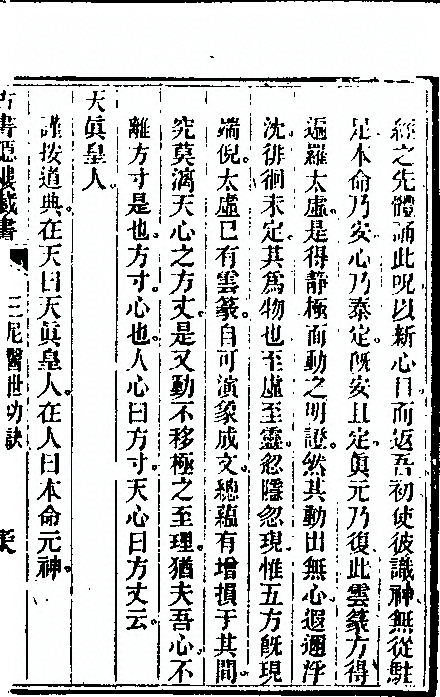 經之先體誦此呪以新心目而返吾初使彼識神無從駐
足本命乃安心乃泰定。既安且定眞元乃復此雲篆方得
遍羅太虛。是得靜極而動之明證。然其動出無心。遐邇浮
沈徘徊未定。其爲物也至虛至靈忽隱忽現惟五方既現
端倪。太虛已有雲篆。自可演象成文。總蘊有增損于其間。
究莫漓天心之方丈。是又動不移極之至理猶夫吾心。不
離方寸是也。方寸。心也。人心曰方寸。天心曰方丈云
天眞皇人。
謹按道典。在天曰天眞皇人。在人曰本命元神。
古書隱樓藏書
三尼醫世功訣